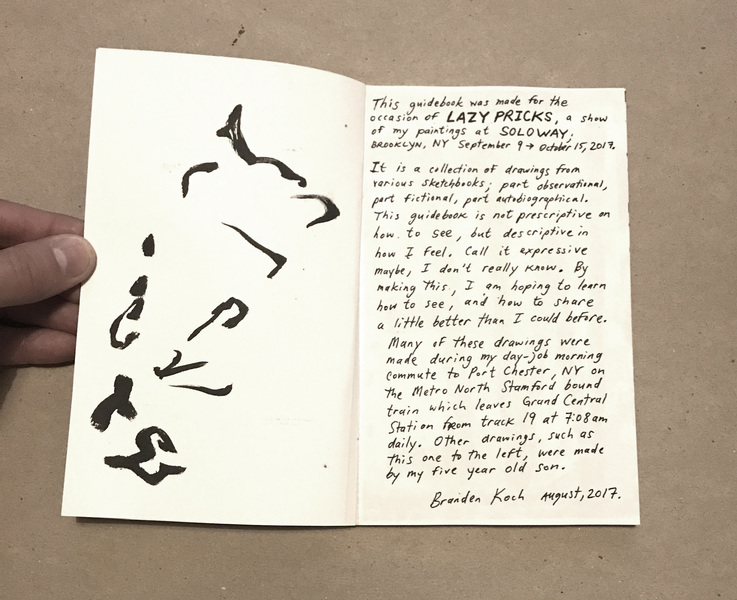 This guidebook was made for the
occasion of LAZY PRICKS, a show
of my paintings at SOLOWAY;
BROOKLYN, NY September 9 → October 15, 2017.
It is a collection of drawings from
various sketchbooks; part observational,
part fictional, part autobiographical.
This guidebook is not prescriptive on
how to see, but descriptive in
how I feel. Call it expressive
maybe, I don't really know. By
making this, I am hoping to learn
how to see, and how to share
a little better than I could before.
Many of these drawings were
made during my day-job morning
commute to Port Chester, NY on
the Metro North Stamford bound
train which leaves Grand Central
Station from track 19 at 7:08am
daily. Other drawings, such as
this one to the left, were made
by my five year old son.
Branden Koch August, 2017.